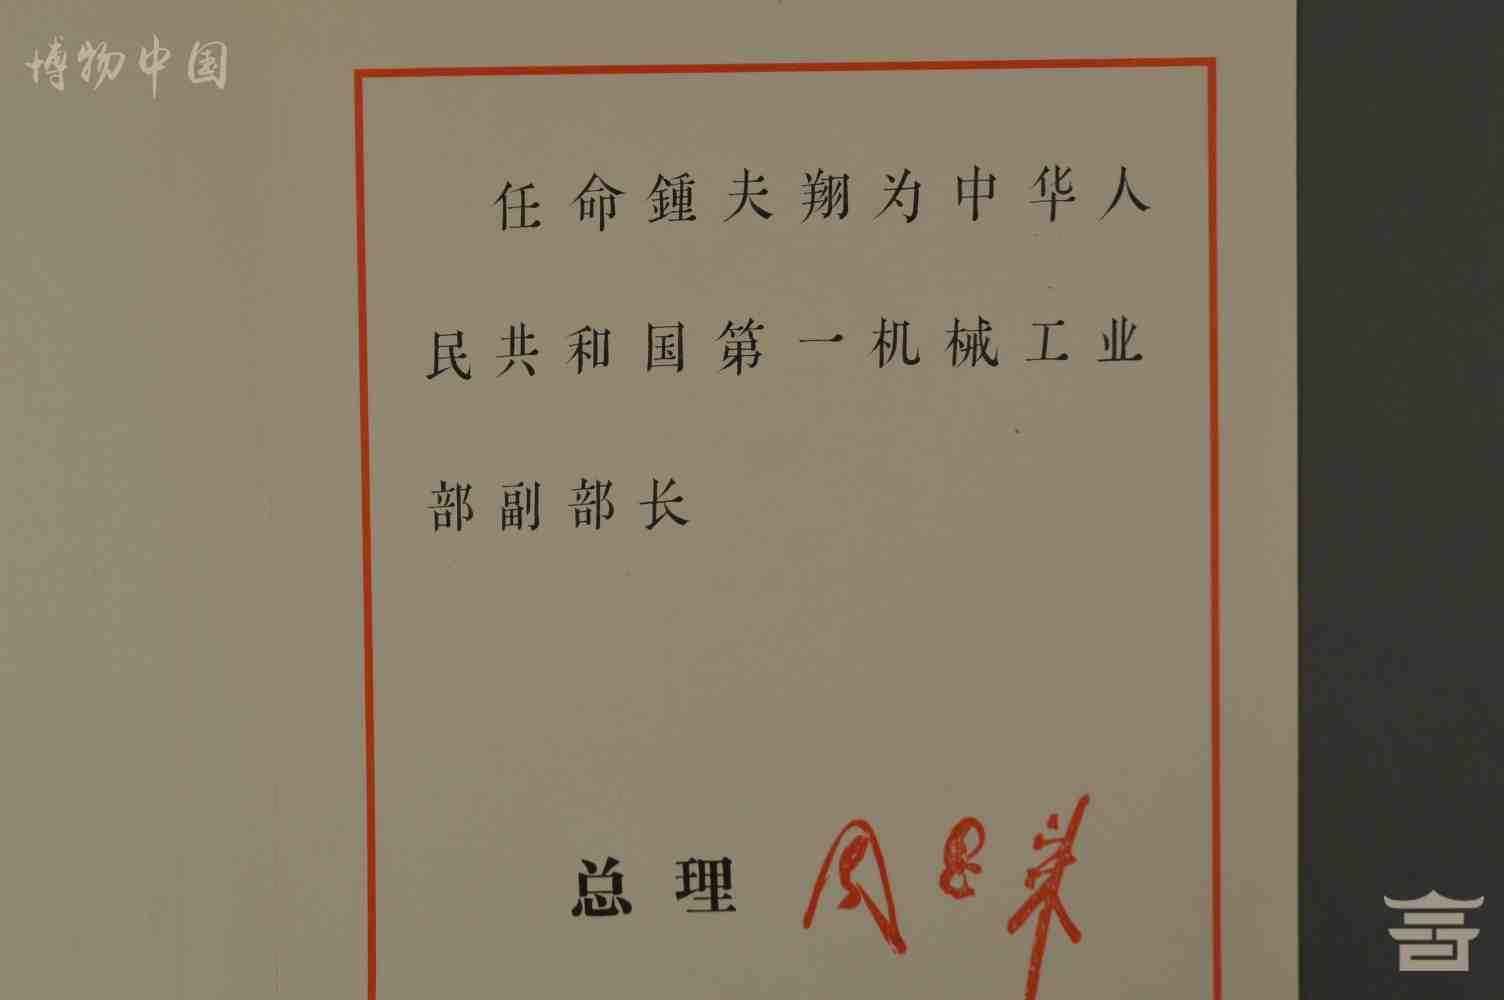 博物中国
任命鍾夫翔为中华人
民共和国第一机械工业
部副部长
总理 周恩来